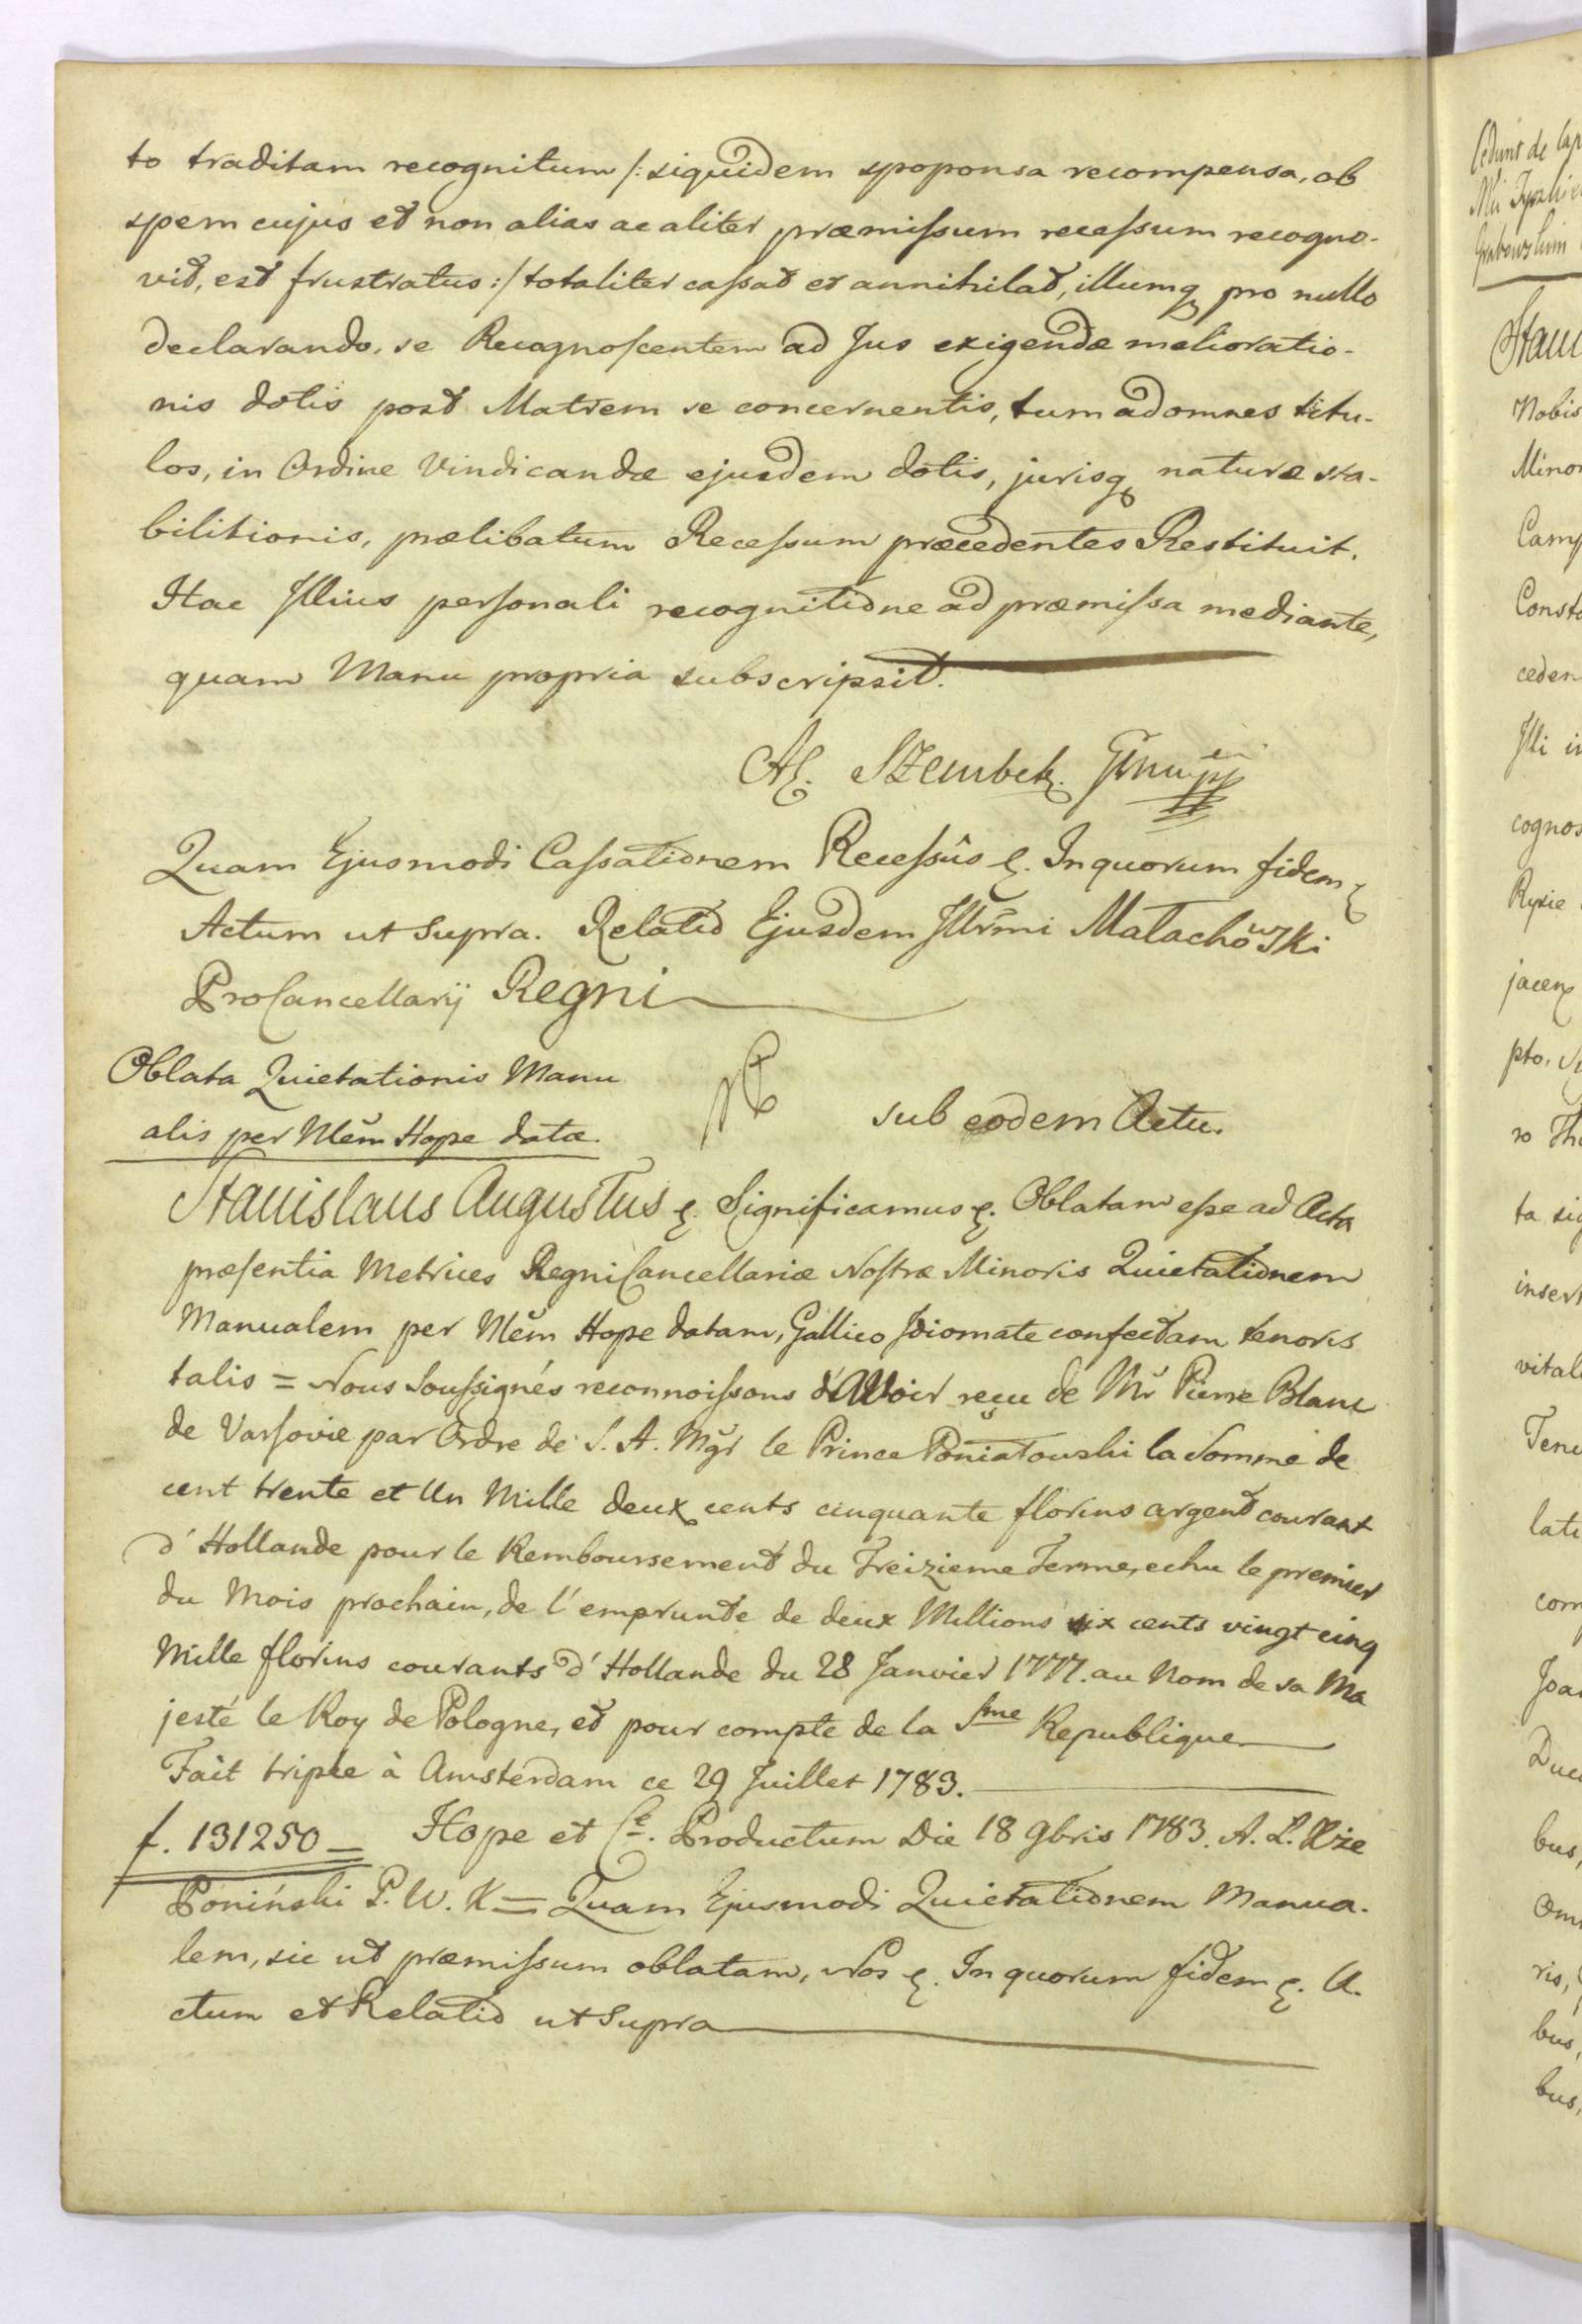 to traditam recognitum /: siquidem spoponsa recompensa, ob
spem cujus et non alias ac aliter præmissum recessum recogno-
vit, est frustratus :/ totaliter cassat et annihilat, illumq pro nullo
declarando, se Recognoscentem ad Jus exigendæ melioratio-
nis dotis post Matrem se concernentis, tum ad omnes titu-
los, in Ordine Vindicandæ ejusdem dotis, jurisq naturæ sta-
bilitionis, prælibatum Recessum præcedentes Restituit.
Hac Illius personali recognitione ad præmissa mediante,
quam Manu propria subscripsit.
Szembek
Quam Ejusmodi Cassationem Recessûs &. In quorum fidem &
Actum ut Supra. Relatio Ejusdem Illrmi Małachowski
ProCancellarij Regni
Oblata Quietationis Manu
alis per Mem Hope datæ.
sub eodem Actu.
Stanislaus Augustus &. Significamus &. Oblatam esse ad Acta
præsentia Metrices Regni Cancellariæ Nostræ Minoris Quietationem
Manualem per Mem Hope datam, Gallico Idiomate confectam tenoris
talis = Nous Soussignés reconnoissons d'Avoir reçu de Mr Pierre Blanc
de Varsovie par Ordre de S. A. Mgr le Prince Poniatowski la Somme de
cent trente et Un Mille deux cents cinquante florins argent courant
d'Hollande pour le Remboursement du Treizieme Terme, echu le premier
du Mois prochain, de l'emprunte de deux Millions six cents vingt cinq
Mille florins courants d'Hollande du 28 Janvier 1777. au Nom de sa Ma
jesté le Roy de Pologne, et pour compte de la Sme Republique
Fait triple à Amsterdam ce 29 Juillet 1783.
f. 131250 = Hope et Ce. Productum Die 18 9bris 1783. A. L. Xże
Poniński P. W. K = Quam Ejusmodi Quietationem Manua-
lem, sic ut præmissum oblatam, Nos &. In quorum fidem &. A-
ctum et Relatio ut Supra
Cedunt de
Nobis
Minor
Camp
Consta
ceden
Illi in
cognos
Ryxie
jacen
pto.
ro Th
ta sig
insert
vital
Tenu
latu
com
Joan
Duc
bus,
omn
ris,
bus,
bus,